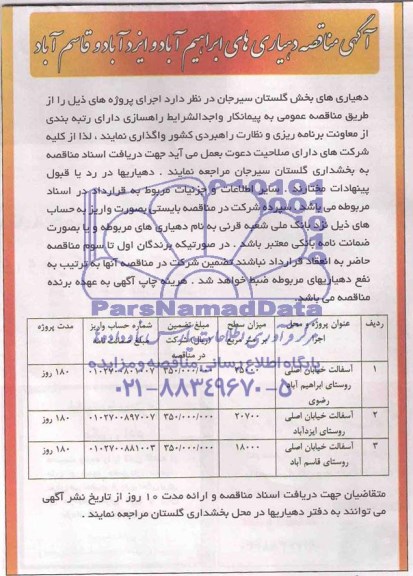 آگهی مناقصه دهیاری های ابراهیم آباد و ایزدآباد و قاسم آباد
دهیاری های بخش گلستان سیرجان در نظر دارد اجرای پروژه های ذیل را از
طریق مناقصه عمومی به پیمانکار واجدالشرایط راهسازی دارای رتبه بندی
از معاونت برنامه ریزی و نظارت راهبردی کشور واگذاری نمایند ، لذا از کلیه
شرکت های دارای صلاحیت دعوت بعمل می آید جهت دریافت اسناد مناقصه
به بخشداری گلستان سیرجان مراجعه نمایند . دهیاریها در رد یا قبول
پیشنهادات مختارند . سایر اطلاعات و جزئیات مربوط به قرارداد در اسناد
مربوطه می باشد. سپرده شرکت در مناقصه بایستی بصورت واریز به حساب
های ذیل نزد بانک ملی شعبه قرنی به نام دهیاری های مربوطه و یا بصورت
ضمانت نامه بانکی معتبر باشد . در صورتیکه برندگان اول تا سوم مناقصه
حاضر به انعقاد قرارداد نباشند تضمین شرکت در مناقصه آنها به ترتیب به
نفع دهیاریهای مربوطه ضبط خواهد شد . هزینه چاپ آگهی به عهده برنده
مناقصه می باشد.
ParsNamadData
پایگاه اطلاع رسانی مناقصه و مزایده
۰۲۱-۸۸۳۴۹۶۷۰-۵
ردیف عنوان پروژه و محل اجرا میزان سطح مبلغ تضمین شرکت در مناقصه شماره حساب واریز مدت پروژه
۱ آسفالت خیابان اصلی روستای ابراهیم آباد رضوی ۱۸۰ روز
۲ آسفالت خیابان اصلی روستای ایزدآباد ۲۰۷۰۰ ۳۵۰/۰۰۰/۰۰۰ ۰۱۰۲۷۰۰۸۹۷۰۰۷ ۱۸۰ روز
۳ آسفالت خیابان اصلی روستای قاسم آباد ۱۸۰۰۰ ۳۵۰/۰۰۰/۰۰۰ ۰۱۰۲۷۰۰۸۸۱۰۰۳ ۱۸۰ روز
متقاضیان جهت دریافت اسناد مناقصه و ارائه مدت ۱۰ روز از تاریخ نشر آگهی
می توانند به دفتر دهیاریها در محل بخشداری گلستان مراجعه نمایند .